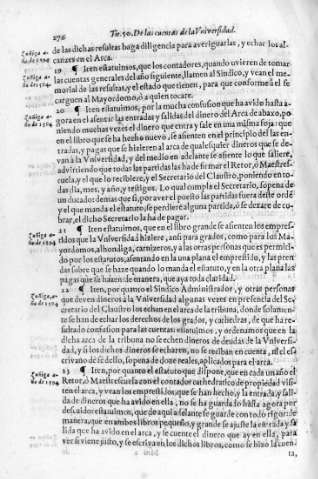 274 Tit. 50. De las cuentas de la Vniuersidad.
de las dichas resultas haga diligencia para aueriguarlas, y echar los alcances en el Arca.
19 ¶ Iten estatuimos, que los contadores, quando vuieren de tomar
las cuentas generales del año siguiente, llamen al Sindico, y vean el memorial de las resultas, y el estado que tienen, para que conforme a el se
carguen al Mayordomo, o a quien tocare.
20 ¶ Iten estatuimos, por la mucha confusion que ha auido hasta agora en el assentar las entradas y salidas del dinero del Arca de abaxo, poniendo muchas vezes el dinero que entra y sale en una misma foja: que
en el libro que se ha hecho nueuo, se assienten en el principio del las entradas, y pagas que se hizieren al arca de qualesquier dineros que se deuan à la Vniuersidad, y del medio en adelante se assiente lo que saliere,
aduirtiendo que todas las partidas las ha de firmar el Retor, ò Maestrescuela, y el que lo recibiere, y el Secretario del Claustro, poniendo en todas dia, mes, y año, y testigos. Lo qual cumpla el Secretario, so pena de
un ducado: demas que si, por auer el puesto las partidas fuera deste orden
y el que manda el estatuto, se perdiere alguna partida, o se dexare de cobrar, el dicho Secretario la ha de pagar.
21 ¶ Iten estatuimos, que en el libro grande se assienten los emprestidos que la Vniuersidad hiziere, assi para grados, como para los Mayordomos, alhondiga, carnicero, y a las otras personas que es permitido por los estatutos, assentando en la una plana el emprestido, y las prendas sobre que se haze quando lo manda el estatuto, y en la otra plana las
pagas que se hazen de manera, que aya toda claridad.
22 ¶ Iten, por quanto el Sindico Administrador, y otras personas
que deuen dineros a la Vniuersidad algunas vezes en presencia del Secretario del Claustro los echan en el arca de la tribuna, donde solamente se han de echar los derechos de los grados, y cathedras, de que ha resultado confusion para las cuentas: estatuimos, y ordenamos que en la
dicha arca de la tribuna no se echen dineros de deudas de la Vniuersidad, y si los dichos dineros se echaren, no se reciban en cuenta, ni el escriuano de fe dello, so pena de doze reales, aplicados para el arca.
23 ¶ Iten, por quanto el estatuto que dispone, que en cada un año el
Retor, ò Maestrescuela con el contador cathedratico de propiedad visiten el arca, y vean los emprestidos que se han hecho, y la entrada, y salida de dineros que ha auido en ella, no se ha guardado hasta agora por
descuido: estatuimos, que de aqui adelante se guarde con todo rigor: de
manera, que en ambos libros pequeño, y grande se ajuste la entrada y salida que ha auido en el arca, y se cuente el dinero que ay en ella, para
ver si viene justo, y se escriua en los dichos libros, como se hizo la cuenta,